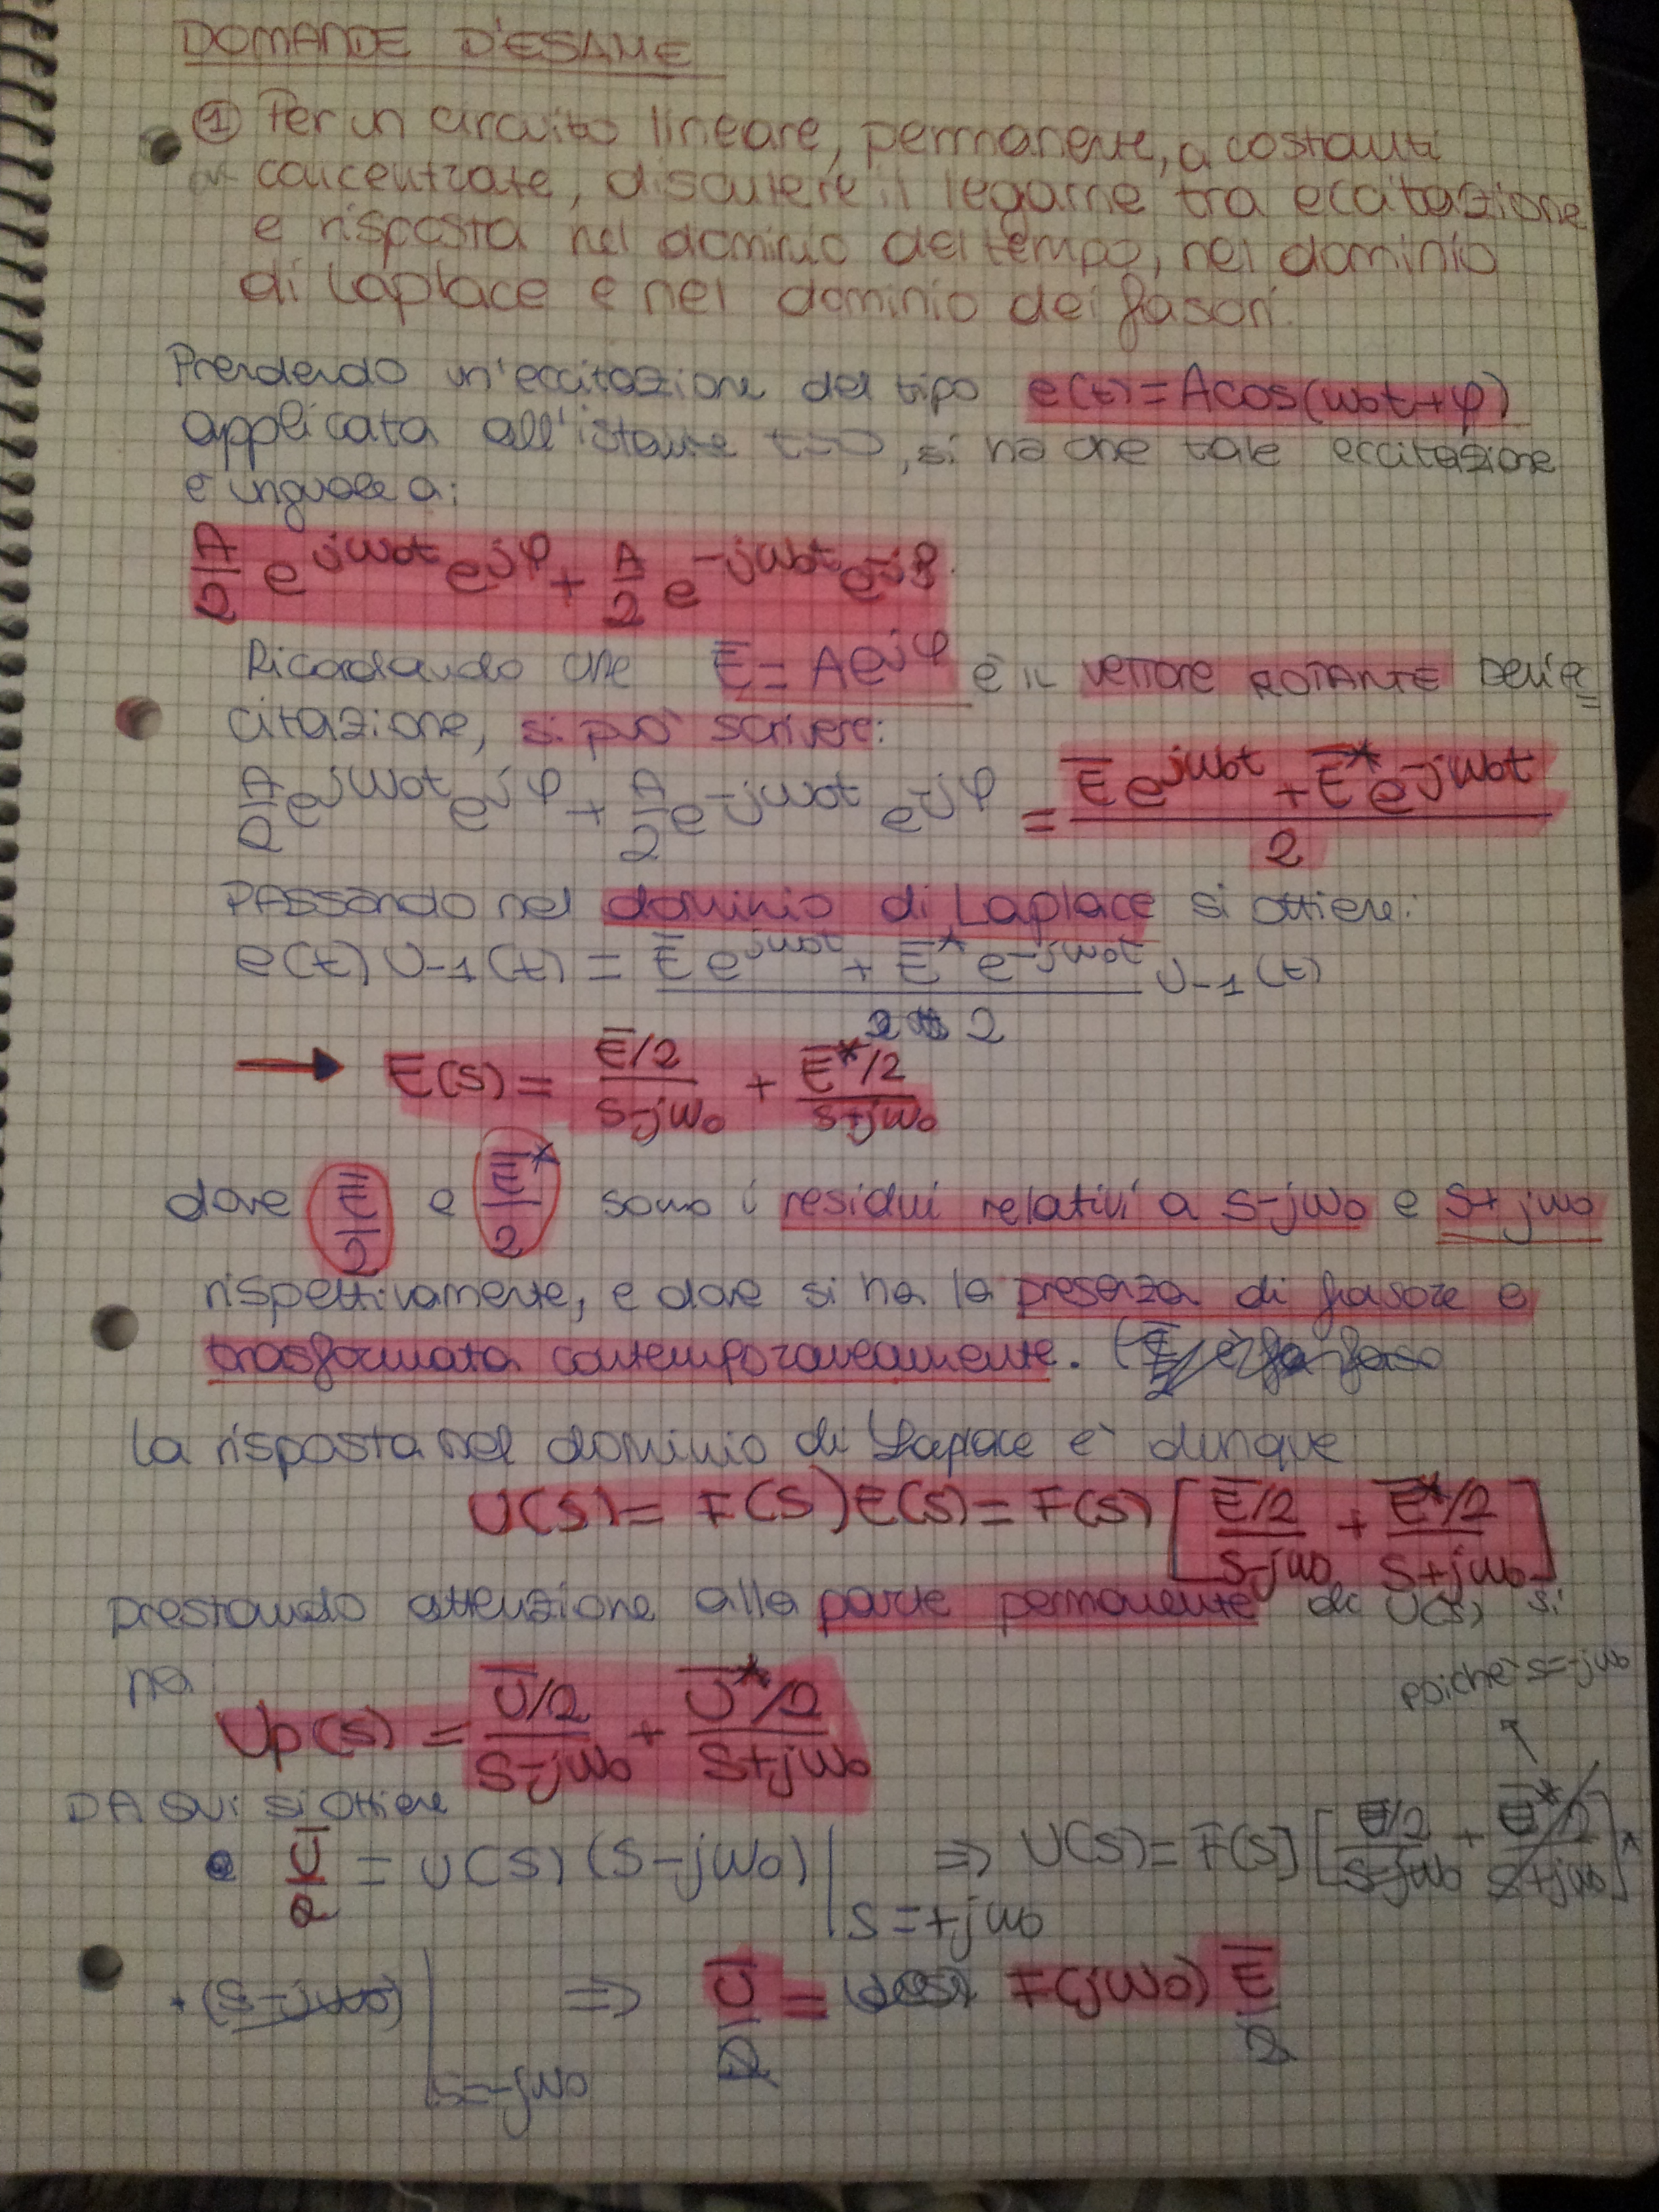 DOMANDE D'ESAME
① Per un circuito lineare, permanente, a costanti
concentrate, discutere il legame tra eccitazione
e risposta nel dominio del tempo, nel dominio
di Laplace e nel dominio dei fasori.
Prendendo un'eccitazione del tipo e(t)=Acos(ω₀t+φ)
applicata all'istante t=0, si ha che tale eccitazione
è unguale a:
A/2 e^{jω₀t} e^{jφ} + A/2 e^{-jω₀t} e^{-jφ}.
Ricordando che E̅ = Ae^{jφ} è il VETTORE ROTANTE Dell'ec=
citazione, si può scrivere:
A/2 e^{jω₀t} e^{jφ} + A/2 e^{-jω₀t} e^{-jφ} = (E̅ e^{jω₀t} + E̅* e^{-jω₀t})/2
PASSANDO nel dominio di Laplace si ottiene:
e(t) U₋₁(t) = (E̅ e^{jω₀t} + E̅* e^{-jω₀t})/2 U₋₁(t)
→ E(s) = (E̅/2)/(s-jω₀) + (E̅*/2)/(s+jω₀)
dove E̅/2 e E̅*/2 sono i residui relativi a s-jω₀ e s+jω₀
rispettivamente, e dove si ha la presenza di fasore e
trasformata contemporaneamente.
La risposta nel dominio di Laplace è dunque
U(s) = F(s)E(s) = F(s) [(E̅/2)/(s-jω₀) + (E̅*/2)/(s+jω₀)]
prestando attenzione alla parte permanente di U(s) si
ha
Up(s) = (U̅/2)/(s-jω₀) + (U̅*/2)/(s+jω₀)
poiché s=-jω₀
DA QUI si ottiene
• U̅/2 = U(s) (s-jω₀) |s=+jω₀ ⇒ U(s) = F(s) [(E̅/2)/(s-jω₀) + (E̅*/2)/(s+jω₀)]*
* (s-jω₀) |s=-jω₀ ⇒ U̅/2 = F(jω₀) E̅/2